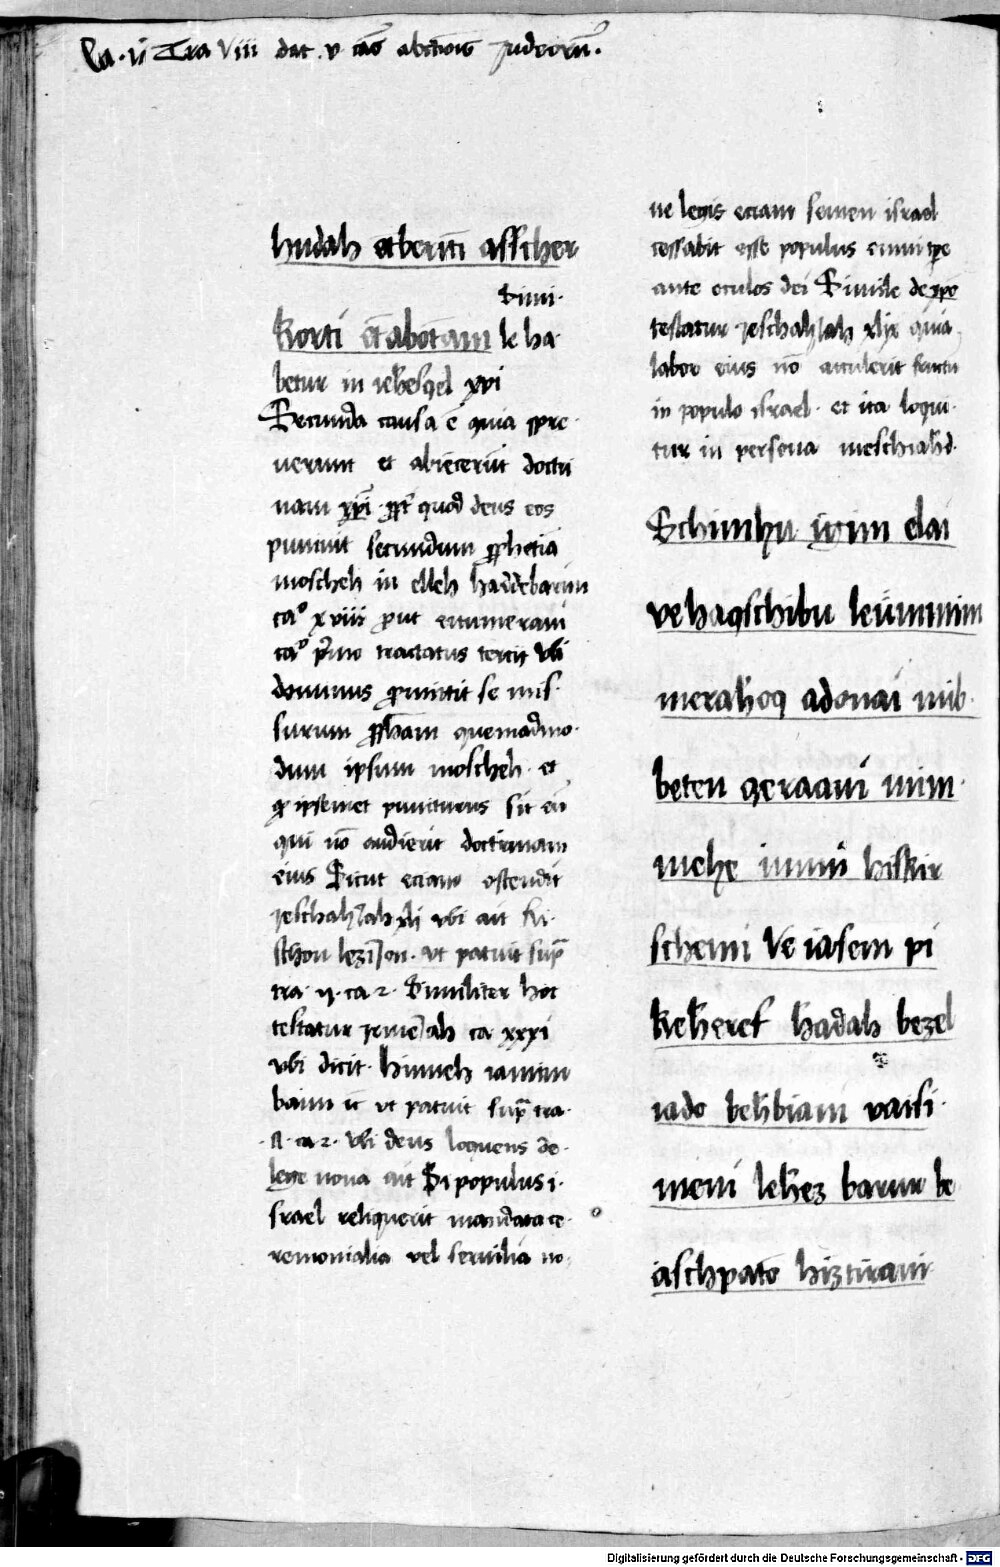 Ca. ij Tra viij dat. v cās abiectionis Judeorū.
hudah etberiti asscher
simi.
korti etabotam le ha
betur in ieheskel xvi
Secunda causa ē quia spre
uerunt et abiecerūt doctri
nam xpi. propter quod deus eos
puniuit secundum prophetiā
moscheh in elleh haddebarim
caº xviij prout enumeraui
caº primo tractatus tercij vbi
dominus promittit se mis
surum prophetam quemadmo
dum ipsum moscheh. et
quod ipsemet puniturus sit eū
qui nō audierit doctrinam
eius Sicut eciam ostendit
jeschahiah xli vbi ait Ri
schon lezion. vt patuit supra
tra. ij. ca 2. Similiter hoc
testatur jremeiah ca xxxi
vbi dicit. hinneh iamim
baim &c vt patuit supra tra.
ij. ca 2. vbi deus loquens de
lege noua ait Si populus i
srael reliquerit mandata ce
remonialia vel seruilia no
ue legis eciam semen israel
cessabit esse populus omni tempore
ante oculos dei Simile de xpo
testatur jeschahiah xlix quia
labor eius nō attulerit fructū
in populo israel. et ita loqui
tur in persona meschiahd.
Schimhu iyim elai
vehaqschibu leümmim
merahoq adonai mib
beten qeraani mim
mehe immi hiskir
schemi Ve iasem pi
keheref hadah bezel
iado hehbiani vaisi
meni lehez barur be
aschpato histirani
Digitalisierung gefördert durch die Deutsche Forschungsgemeinschaft - DFG